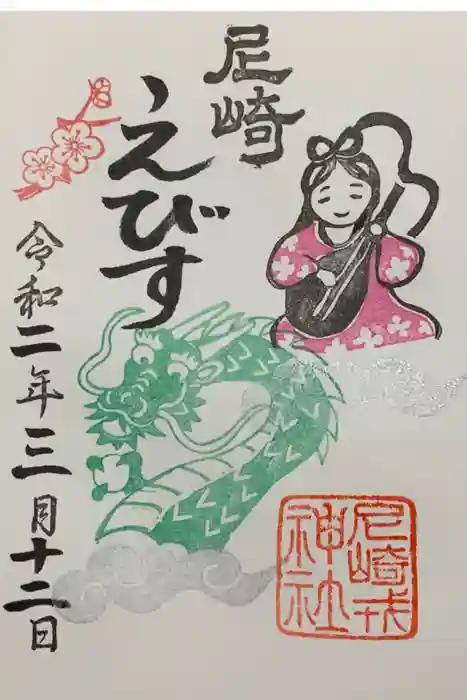 尼崎
えびす
令和二年三月十二日
尼崎戎
神社